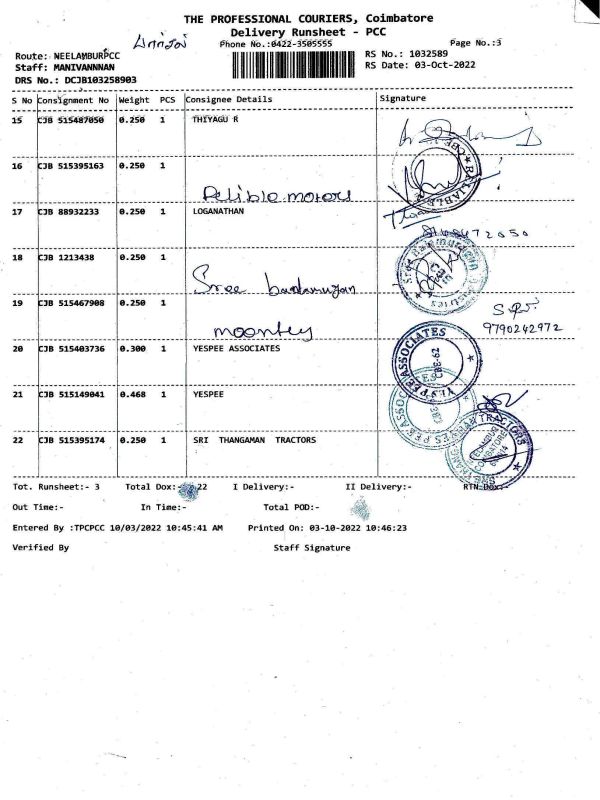 THE PROFESSIONAL COURIERS, Coimbatore
Delivery Runsheet - PCC
Phone No.:0422-3505555
Page No.:3
Route: NEELAMBURPCC
RS No.: 1032589
Staff: MANIVANNNAN
RS Date: 03-Oct-2022
DRS No.: DCJB103258903
S No Consignment No Weight PCS Consignee Details Signature
15 CJB 515487050 0.250 1 THIYAGU R
16 CJB 515395163 0.250 1
Relible motors
17 CJB 88932233 0.250 1 LOGANATHAN
18 CJB 1213438 0.250 1
Sree
19 CJB 515467908 0.250 1
9790242972
20 CJB 515403736 0.300 1 YESPEE ASSOCIATES
YESPEE ASSOCIATES
21 CJB 515149041 0.468 1 YESPEE
22 CJB 515395174 0.250 1 SRI THANGAMAN TRACTORS
Tot. Runsheet:- 3 Total Dox:- 22 I Delivery:- II Delivery:- RTN Dox:-
Out Time:- In Time:- Total POD:-
Entered By :TPCPCC 10/03/2022 10:45:41 AM Printed On: 03-10-2022 10:46:23
Verified By Staff Signature